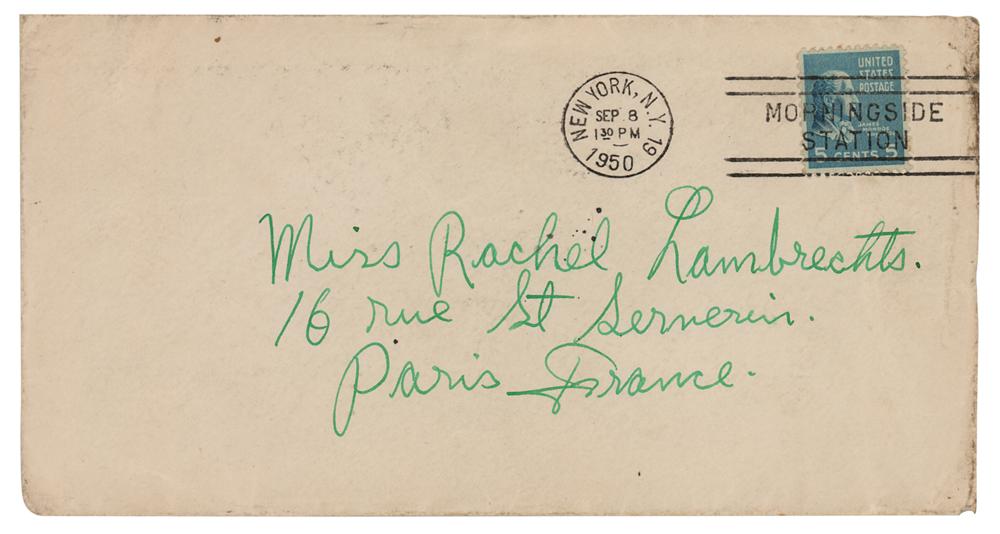 NEW YORK, N.Y. 19
SEP 8
1 30 PM
1950
UNITED
STATES
POSTAGE
JAMES
MONROE
5 CENTS 5
MORNINGSIDE
STATION
Miss Rachel Lambrechts.
16 rue St Serverin.
Paris France.